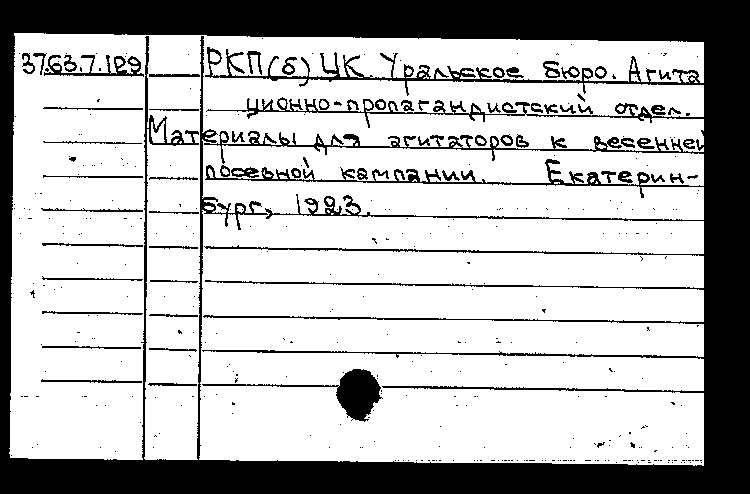 37.63.7.129 РКП(б) ЦК. Уральское бюро. Агита
ционно-пропагандистский отдел.
Материалы для агитаторов к весенней
посевной кампании. Екатерин-
бург, 1923.